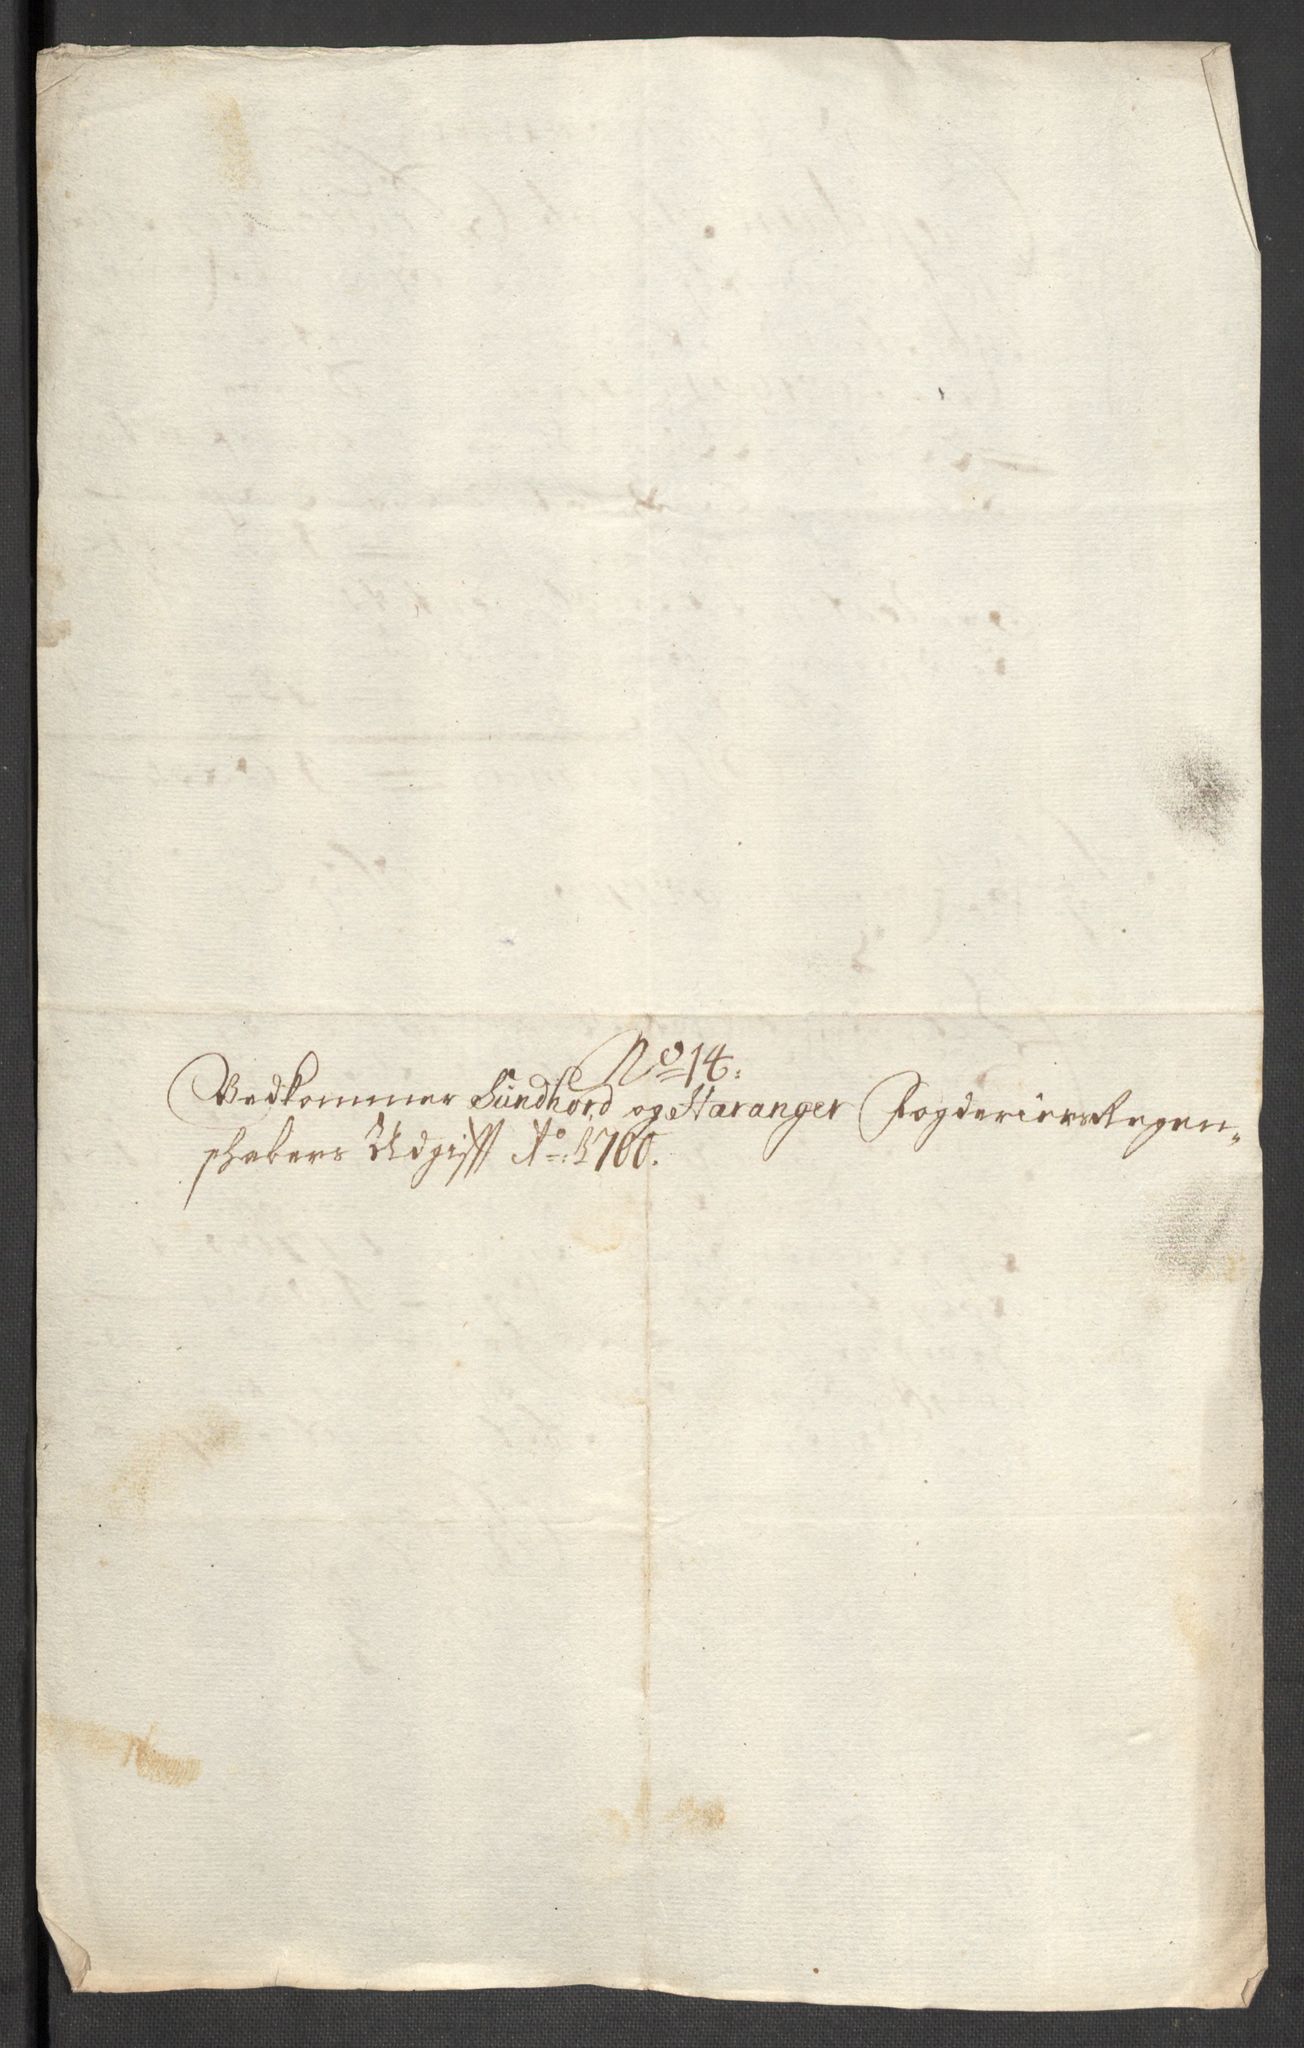 No 14:
Vedkommer Sundhord og Haranger Fogderiers Regen„
schabers Udgifft Ao: 1700.